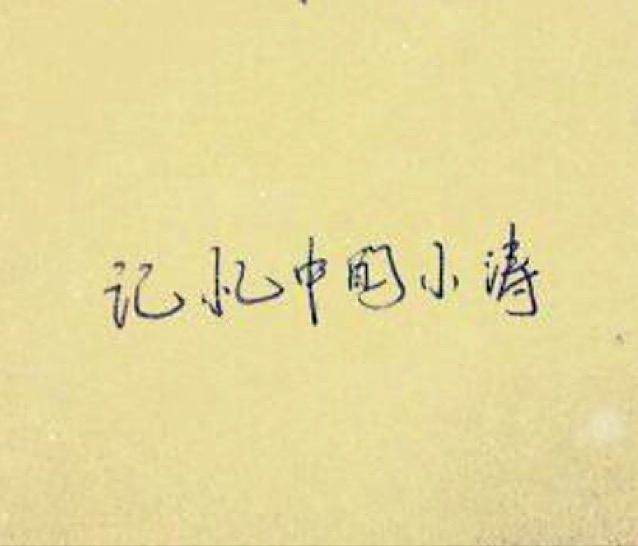 记忆中的小涛